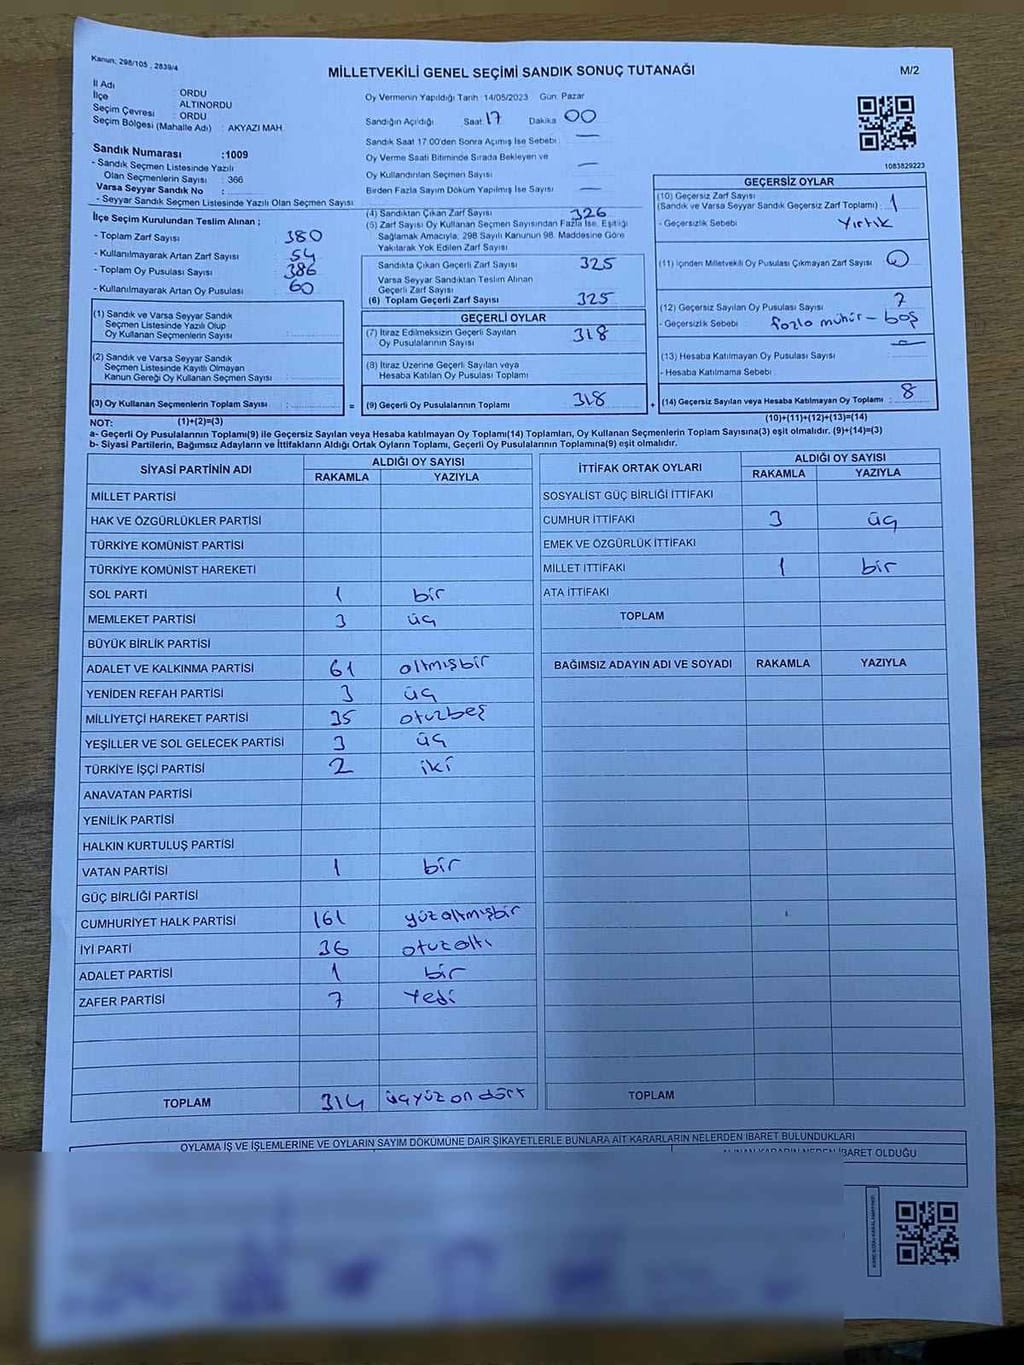 Kanun, 298/105 , 2839/4
MİLLETVEKİLİ GENEL SEÇİMİ SANDIK SONUÇ TUTANAĞI
M/2
İl Adı : ORDU
İlçe : ALTINORDU
Seçim Çevresi : ORDU
Seçim Bölgesi (Mahalle Adı) : AKYAZI MAH.
Sandık Numarası :1009
- Sandık Seçmen Listesinde Yazılı
Olan Seçmenlerin Sayısı : 366
Varsa Seyyar Sandık No :
- Seyyar Sandık Seçmen Listesinde Yazılı Olan Seçmen Sayısı
Oy Vermenin Yapıldığı Tarih: 14/05/2023 Gün: Pazar
Sandığın Açıldığı Saat: 17 Dakika: 00
Sandık Saat 17:00'den Sonra Açımış İse Sebebi: —
Oy Verme Saati Bitiminde Sırada Bekleyen ve
Oy Kullandırılan Seçmen Sayısı —
Birden Fazla Sayım Döküm Yapılmış İse Sayısı —
1083829223
İlçe Seçim Kurulundan Teslim Alınan ;
- Toplam Zarf Sayısı 380
- Kullanılmayarak Artan Zarf Sayısı 54
- Toplam Oy Pusulası Sayısı 386
- Kullanılmayarak Artan Oy Pusulası 60
(1) Sandık ve Varsa Seyyar Sandık
Seçmen Listesinde Yazılı Olup
Oy Kullanan Seçmenlerin Sayısı :
(2) Sandık ve Varsa Seyyar Sandık
Seçmen Listesinde Kayıtlı Olmayan
Kanun Gereği Oy Kullanan Seçmen Sayısı
(3) Oy Kullanan Seçmenlerin Toplam Sayısı :
(1)+(2)=(3)
(4) Sandıktan Çıkan Zarf Sayısı 326
(5) Zarf Sayısı Oy Kullanan Seçmen Sayısından Fazla İse, Eşitliği
Sağlamak Amacıyla, 298 Sayılı Kanunun 98. Maddesine Göre
Yakılarak Yok Edilen Zarf Sayısı
Sandıkta Çıkan Geçerli Zarf Sayısı 325
Varsa Seyyar Sandıktan Teslim Alınan
Geçerli Zarf Sayısı
(6) Toplam Geçerli Zarf Sayısı 325
GEÇERLİ OYLAR
(7) İtiraz Edilmeksizin Geçerli Sayılan
Oy Pusulalarının Sayısı 318
(8) İtiraz Üzerine Geçerli Sayılan veya
Hesaba Katılan Oy Pusulası Toplamı
= (9) Geçerli Oy Pusulalarının Toplamı 318
GEÇERSİZ OYLAR
(10) Geçersiz Zarf Sayısı
(Sandık ve Varsa Seyyar Sandık Geçersiz Zarf Toplamı) : 1
- Geçersizlik Sebebi Yırtık
(11) İçinden Milletvekili Oy Pusulası Çıkmayan Zarf Sayısı 0
(12) Geçersiz Sayılan Oy Pusulası Sayısı 7
- Geçersizlik Sebebi fazla mühür - boş
(13) Hesaba Katılmayan Oy Pusulası Sayısı —
- Hesaba Katılmama Sebebi
+ (14) Geçersiz Sayılan veya Hesaba Katılmayan Oy Toplamı : 8
(10)+(11)+(12)+(13)=(14)
NOT:
a- Geçerli Oy Pusulalarının Toplamı(9) ile Geçersiz Sayılan veya Hesaba katılmayan Oy Toplamı(14) Toplamları, Oy Kullanan Seçmenlerin Toplam Sayısına(3) eşit olmalıdır. (9)+(14)=(3)
b- Siyasi Partilerin, Bağımsız Adayların ve İttifakların Aldığı Ortak Oyların Toplamı, Geçerli Oy Pusulalarının Toplamına(9) eşit olmalıdır.
SİYASİ PARTİNİN ADI ALDIĞI OY SAYISI
RAKAMLA YAZIYLA
MİLLET PARTİSİ
HAK VE ÖZGÜRLÜKLER PARTİSİ
TÜRKİYE KOMÜNİST PARTİSİ
TÜRKİYE KOMÜNİST HAREKETİ
SOL PARTİ 1 bir
MEMLEKET PARTİSİ 3 üç
BÜYÜK BİRLİK PARTİSİ
ADALET VE KALKINMA PARTİSİ 61 altmışbir
YENİDEN REFAH PARTİSİ 3 üç
MİLLİYETÇİ HAREKET PARTİSİ 35 otuzbeş
YEŞİLLER VE SOL GELECEK PARTİSİ 3 üç
TÜRKİYE İŞÇİ PARTİSİ 2 iki
ANAVATAN PARTİSİ
YENİLİK PARTİSİ
HALKIN KURTULUŞ PARTİSİ
VATAN PARTİSİ 1 bir
GÜÇ BİRLİĞİ PARTİSİ
CUMHURİYET HALK PARTİSİ 161 yüzaltmışbir
İYİ PARTİ 36 otuzaltı
ADALET PARTİSİ 1 bir
ZAFER PARTİSİ 7 Yedi
TOPLAM 314 üçyüz on dört
İTTİFAK ORTAK OYLARI ALDIĞI OY SAYISI
RAKAMLA YAZIYLA
SOSYALİST GÜÇ BİRLİĞİ İTTİFAKI
CUMHUR İTTİFAKI 3 üç
EMEK VE ÖZGÜRLÜK İTTİFAKI
MİLLET İTTİFAKI 1 bir
ATA İTTİFAKI
TOPLAM
BAĞIMSIZ ADAYIN ADI VE SOYADI RAKAMLA YAZIYLA
TOPLAM
OYLAMA İŞ VE İŞLEMLERİNE VE OYLARIN SAYIM DÖKÜMÜNE DAİR ŞİKAYETLERLE BUNLARA AİT KARARLARIN NELERDEN İBARET BULUNDUKLARI
İBARET OLDUĞU